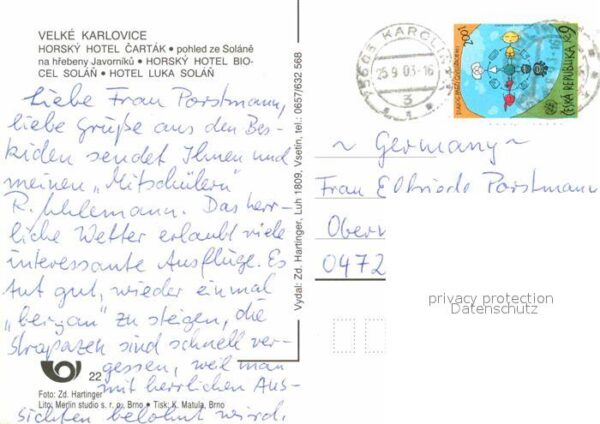 VELKÉ KARLOVICE
HORSKÝ HOTEL ČARTÁK • pohled ze Soláně
na hřebeny Javorníků • HORSKÝ HOTEL BIO-
CEL SOLÁŇ • HOTEL LUKA SOLÁŇ
Liebe Frau Porstmann,
liebe Grüße aus den Bes-
kiden sendet Ihnen und
meinen „Mitschülern"
R. Uhlemann. Das herr-
liche Wetter erlaubt viele
interessante Ausflüge. Es
tut gut, wieder einmal
„bergan" zu steigen, die
Strapazen sind schnell ver-
gessen, weil man
mit herrlichen Aus-
sichten belohnt wird.
22
Foto: Zd. Hartinger
Lito: Merlin studio s. r. o., Brno • Tisk: K. Matula, Brno
Vydal: Zd. Hartinger, Luh 1809, Vsetín, tel.: 0657/632 568
25.9.03-16
3
2001
9
ČESKÁ REPUBLIKA
~ Germany ~
Frau Elfriede Porstmann
Ober
0472
privacy protection
Datenschutz